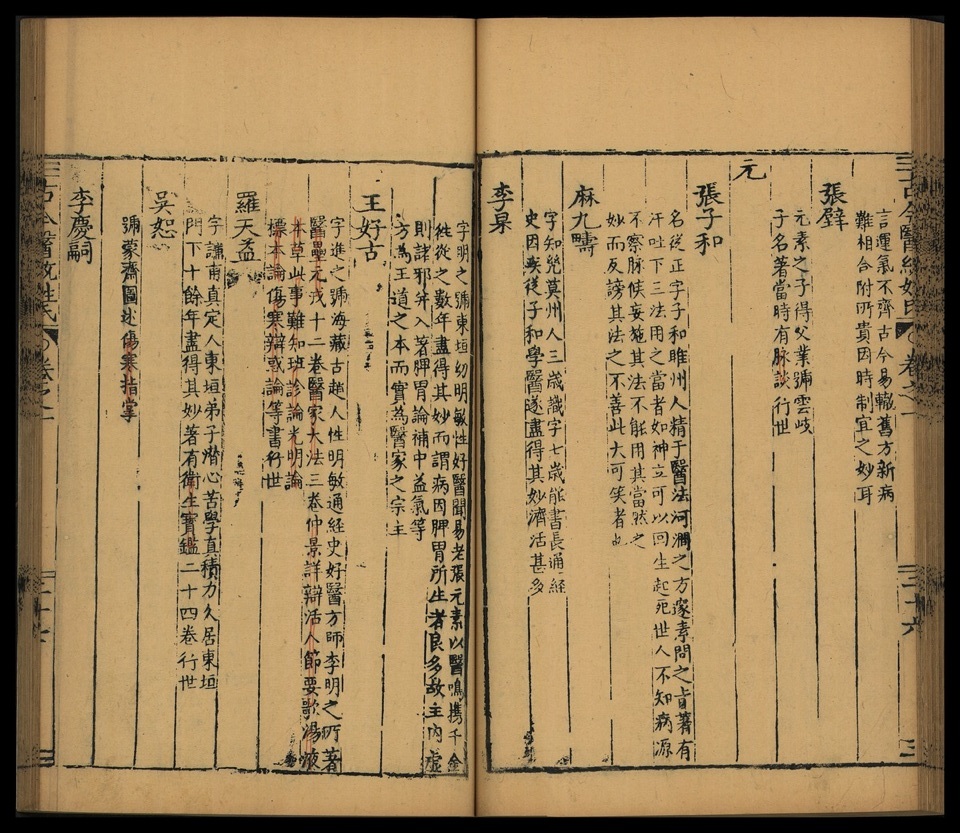 言運氣不齊古今易轍舊方新病
難相合附所貴因時制宜之妙耳
張璧
元素之子得父業號雲岐
子名著當時有脉談行世
元
張子和
名從正字子和睢州人精于醫法河澗之方邃素問之旨著有
汗吐下三法用之當者如神立可以回生起死世人不知病源
不察脉候妄施其法不能用其當然之
妙而反謗其法之不善此大可笑者也
麻九疇
字知幾莫州人三歲識字七歲能書長通經
史因疾從子和學醫遂盡得其妙濟活甚多
李杲
字明之號東垣幼明敏性好醫聞易老張元素以醫鳴携千金
徃從之数年盡得其妙而謂病因脾胃所生者良多故主内虛
則諸邪并入著脾胃論補中益氣等
方為王道之本而實為醫家之宗主
王好古
字進之號海藏古趙人性明敏通經史好醫方師李明之所著
醫壘元戎十二卷醫家大法三卷仲景詳辯活人節要歌湯液
本草此事難知班診論光明論
標本論傷寒辯惑論等書行世
羅天益
字謙甫真定人東垣弟子潛心苦學真積力久居東垣
門下十餘年盡得其妙著有衛生寶鑑二十四卷行世
吳恕
號蒙齋圖述傷寒指掌
李慶嗣